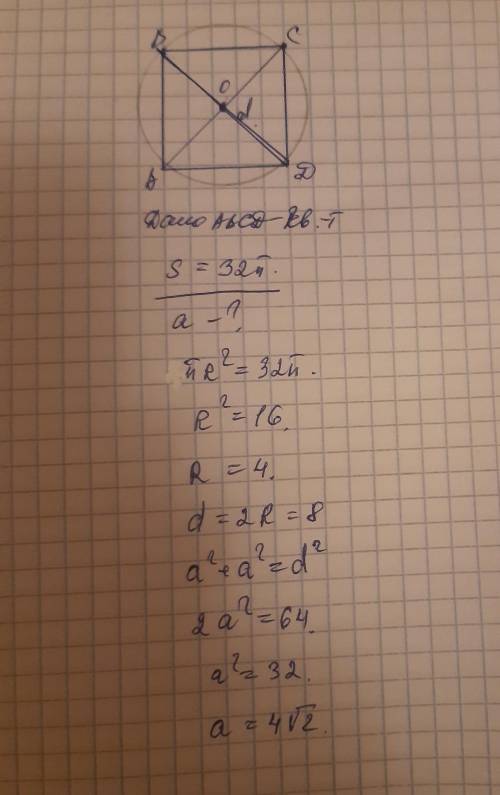 B C
O
d
A D
Дано ABCD - кв.-т
S = 32π.
a - ?
πR² = 32π.
R² = 16.
R = 4.
d = 2R = 8
a² + a² = d²
2a² = 64.
a² = 32.
a = 4√2.